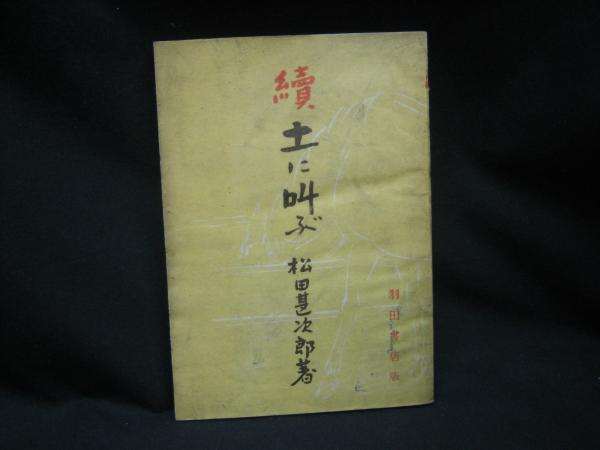 續
土に叫ぶ
松田甚次郎著
羽田書店版